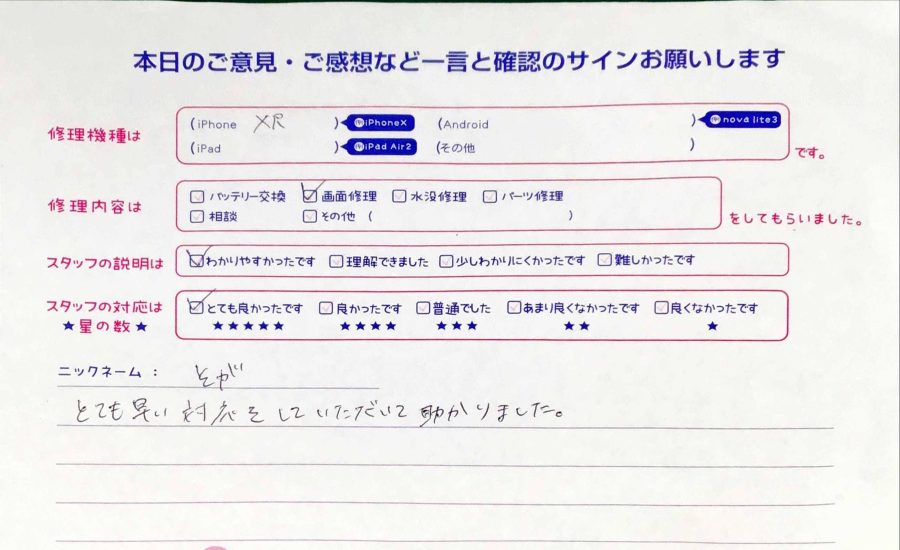 本日のご意見・ご感想など一言と確認のサインお願いします
修理機種は
(iPhone XR ) 例iPhoneX (Android ) 例nova lite3
(iPad ) 例iPad Air2 (その他 )
です。
修理内容は
バッテリー交換 画面修理 水没修理 パーツ修理
相談 その他 ( )
をしてもらいました。
スタッフの説明は
わかりやすかったです 理解できました 少しわかりにくかったです 難しかったです
スタッフの対応は
★星の数★
とても良かったです 良かったです 普通でした あまり良くなかったです 良くなかったです
★★★★★ ★★★★ ★★★ ★★ ★
ニックネーム： そが
とても早い対応をしていただいて助かりました。